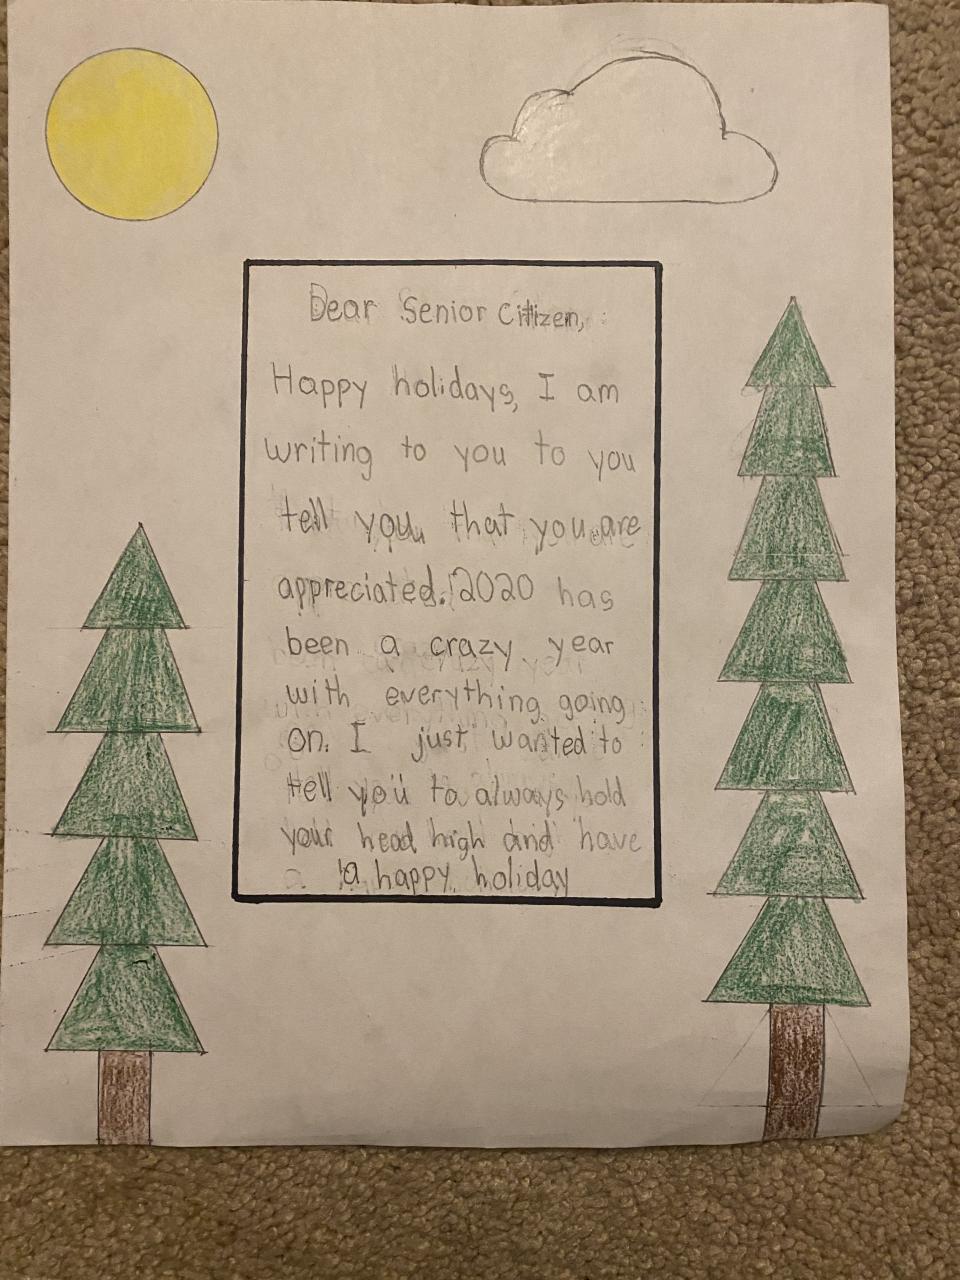 Dear Senior Citizen,
Happy holidays, I am
writing to you to you
tell you that you are
appreciated. 2020 has
been a crazy year
with everything going
on. I just wanted to
tell you to always hold
your head high and have
a happy holiday